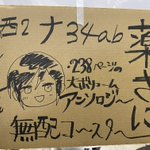 西2 ナ34ab
薬さに
238ページの
大ボリューム
アンソロジー
無配コースター